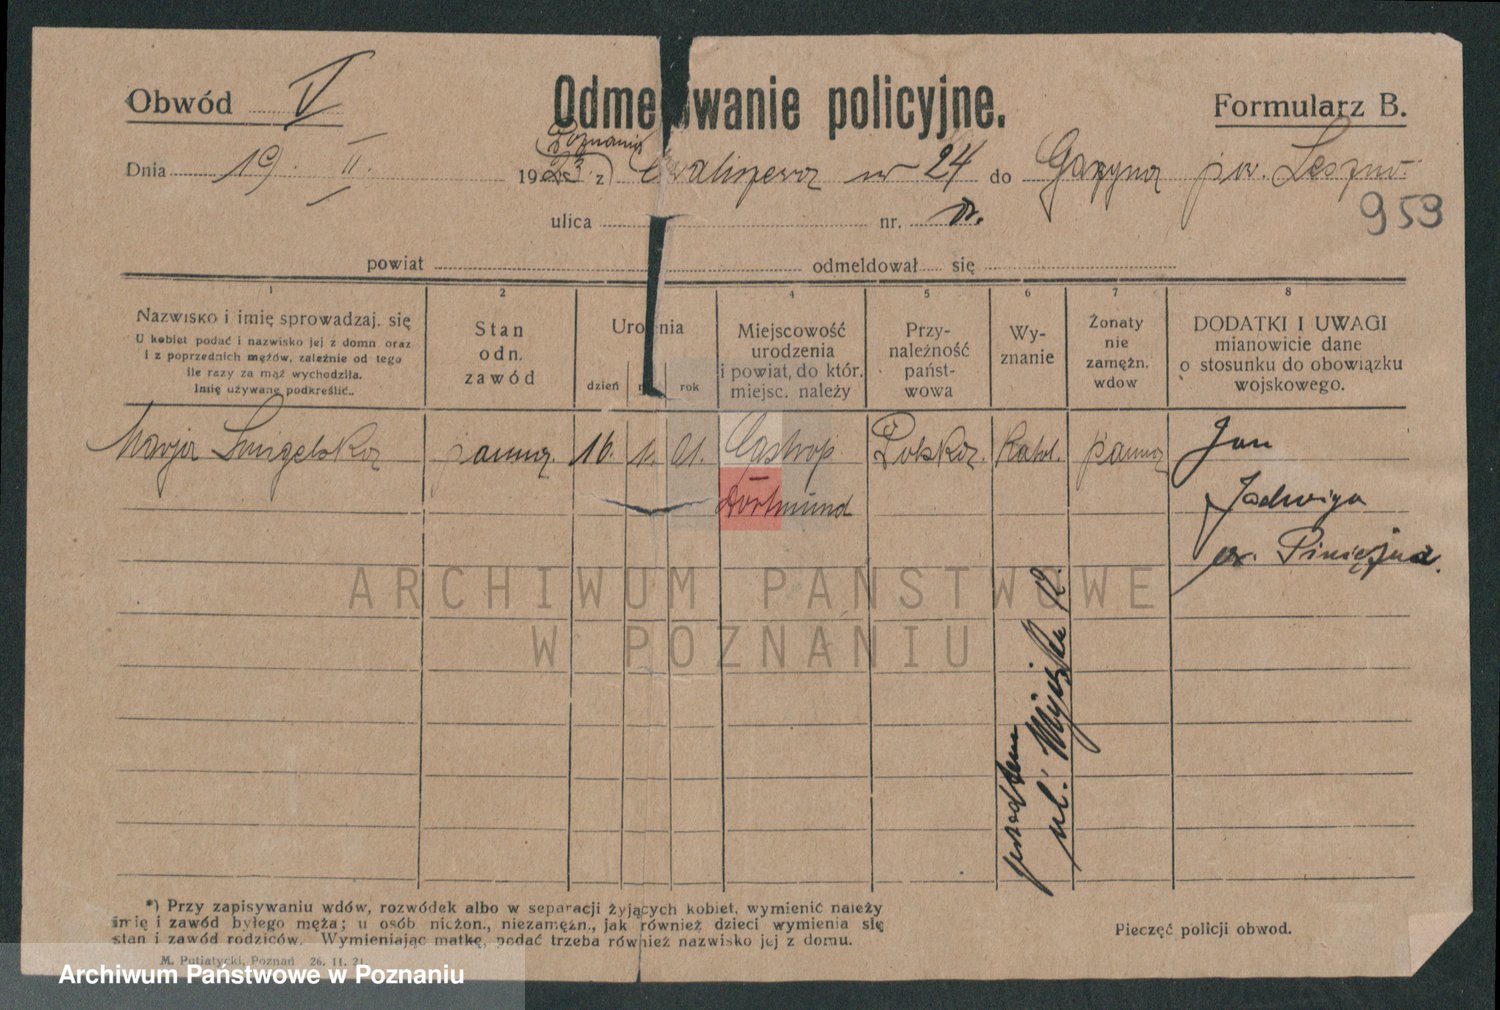 Obwód V
Odmeldowanie policyjne.
Formularz B.
Dnia 19. II. 1923 z Poznania Chwaliszewa nr 24 do Garzyna pow. Leszno.
953
ulica nr.
powiat odmeldował się
1 2 4 5 6 7 8
Nazwisko i imię sprowadzaj. się
U kobiet podać i nazwisko jej z domu oraz
i z poprzednich mężów, zależnie od tego
ile razy za mąż wychodziła.
Imię używane podkreślić..
Stan
odn.
zawód
Urodzenia
dzień rok
Miejscowość
urodzenia
i powiat, do któr.
miejsc. należy
Przy-
należność
państ-
wowa
Wy-
znanie
Żonaty
nie
zamężn.
wdow
DODATKI I UWAGI
mianowicie dane
o stosunku do obowiązku
wojskowego.
Marja Smigelska panna 16. 1. 01. Castrop Polska. Katol. panna Jan
Dortmund Jadwiga
Pinięzna.
przedtem
ul.
ARCHIWUM PAŃSTWOWE
W POZNANIU
*) Przy zapisywaniu wdów, rozwódek albo w separacji żyjących kobiet, wymienić należy
imię i zawód byłego męża; u osób nieżon., niezamężn., jak również dzieci wymienia się
stan i zawód rodziców. Wymieniając matkę, podać trzeba również nazwisko jej z domu.
Pieczęć policji obwod.
M. Putiatycki, Poznań 26. 11. 21.
Archiwum Państwowe w Poznaniu